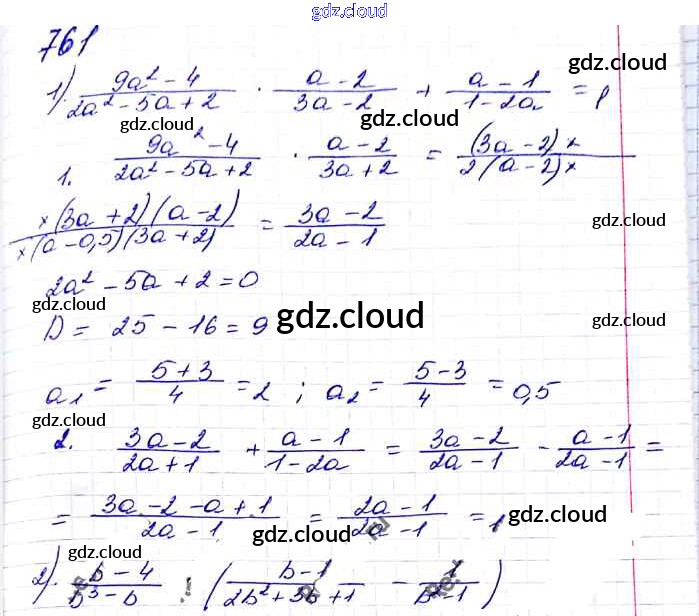 gdz.cloud
761
1). (9a² - 4)/(2a² - 5a + 2) · (a - 2)/(3a - 2) + (a - 1)/(1 - 2a) = 1
gdz.cloud
gdz.cloud gdz.cloud
1. (9a² - 4)/(2a² - 5a + 2) · (a - 2)/(3a + 2) = (3a - 2)×/2(a - 2)×
×(3a + 2)(a - 2)/×(a - 0,5)(3a + 2) = (3a - 2)/(2a - 1)
gdz.cloud
2a² - 5a + 2 = 0
gdz.cloud
D = 25 - 16 = 9 gdz.cloud gdz.cloud
a₁ = (5 + 3)/4 = 2 ; a₂ = (5 - 3)/4 = 0,5
gdz.cloud gdz.cloud
2. (3a - 2)/(2a + 1) + (a - 1)/(1 - 2a) = (3a - 2)/(2a - 1) - (a - 1)/(2a - 1) =
= (3a - 2 - a + 1)/(2a - 1) = (2a - 1)/(2a - 1) = 1
gdz.cloud
gdz.cloud
2). (b - 4)/(b³ - b) : ((b - 1)/(2b² + 3b + 1) - 1/(b² - 1))